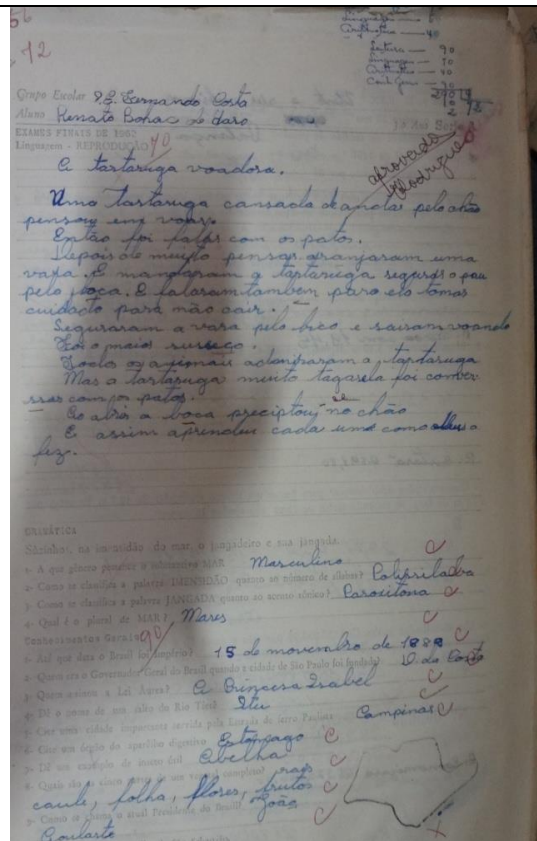 56
72
Linguagem — 
Aritmética — 40
Leitura — 90
Linguagem — 70
Aritmética — 40
Conh. Ger. — 90
290
Grupo Escolar G.E. Fernando Costa
Aluno Renato Bohac de Haro
EXAMES FINAIS DE 1962
Linguagem - REPRODUÇÃO 70
aprovado
Rodrigues
A tartaruga voadora.
Uma tartaruga cansada de andar pelo chão
pensou em voar.
Então foi falar com os patos.
Depois de muito pensar arranjaram uma
vara. E mandaram a tartaruga segurar o pau
pela boca. E falaram também para ela tomar
cuidado para não cair.
Seguraram a vara pelo bico e sairam voando
Foi o maior susseço.
Todos os animais admiraram a tartaruga
Mas a tartaruga muito tagarela foi conver-
ssar com os patos.
Ao abrir a boca preciptou se no chão
E assim aprendeu cada uma como
fez.
GRAMÁTICA
Sòzinhos, na imensidão do mar, o jangadeiro e sua jangada.
1- A que gênero pertence o substantivo MAR Masculino
2- Como se classifica a palavra IMENSIDÃO quanto ao número de sílabas? Polissílaba
3- Como se classifica a palavra JANGADA quanto ao acento tônico? Paroxítona
4- Qual é o plural de MAR? Mares
Conhecimentos Gerais 90
1- Até que data o Brasil foi império? 15 de novembro de 1889
2- Quem era o Governador Geral do Brasil quando a cidade de São Paulo foi fundada? D. da Costa
3- Quem assinou a Lei Áurea? A Princesa Isabel
4- Dê o nome de um salto do Rio Tietê Itu
5- Cite uma cidade importante servida pela Estrada de ferro Paulista Campinas
6- Cite um órgão do aparelho digestivo Estômago
7- Dê um exemplo de inseto útil Abelha
8- Quais são as cinco partes de um vegetal completo? raiz
caule, folha, flores, frutos
9- Como se chama o atual Presidente do Brasil? João
Goularte